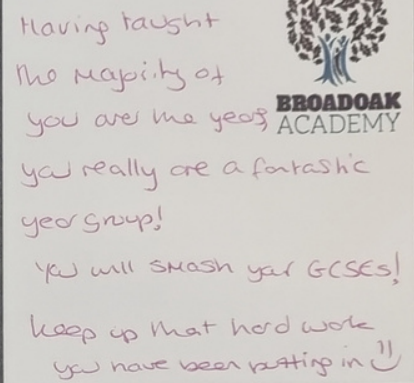 Having taught
the majority of
you over the years
BROADOAK
ACADEMY
you really are a fantastic
year group!
You will smash your GCSEs!
Keep up that hard work
you have been putting in